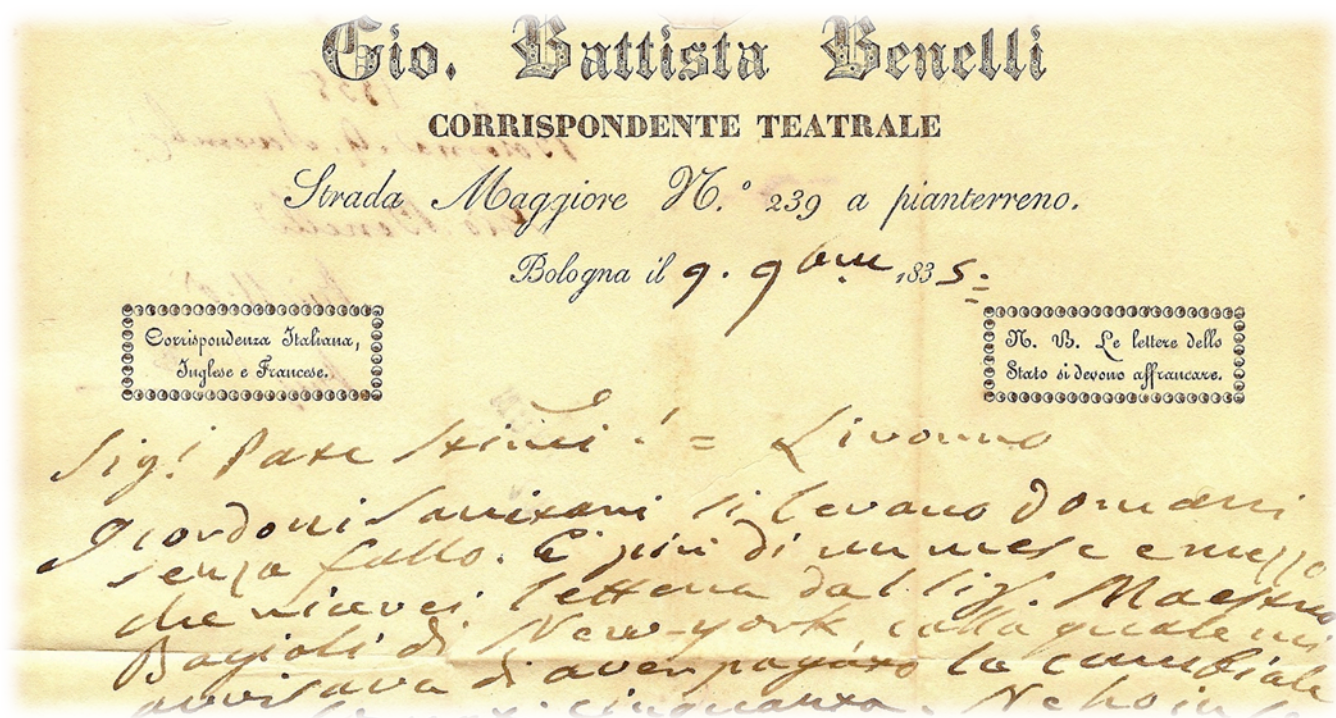 Gio. Battista Benelli
CORRISPONDENTE TEATRALE
Strada Maggiore N.° 239 a pianterreno.
Bologna il 9. 9bre 1835:
Corrispondenza Italiana,
Inglese e Francese.
N. B. Le lettere dello
Stato si devono affrancare.
Sig. = Livorno
I cordoni sanitari si levano domani
senza fallo. È più di un mese e mezzo
che ricevei lettera dal Sig. Maestro
Bagioli di New-york, colla quale mi
avvisava di aver pagato la cambiale
cinquanta. Ne ho in